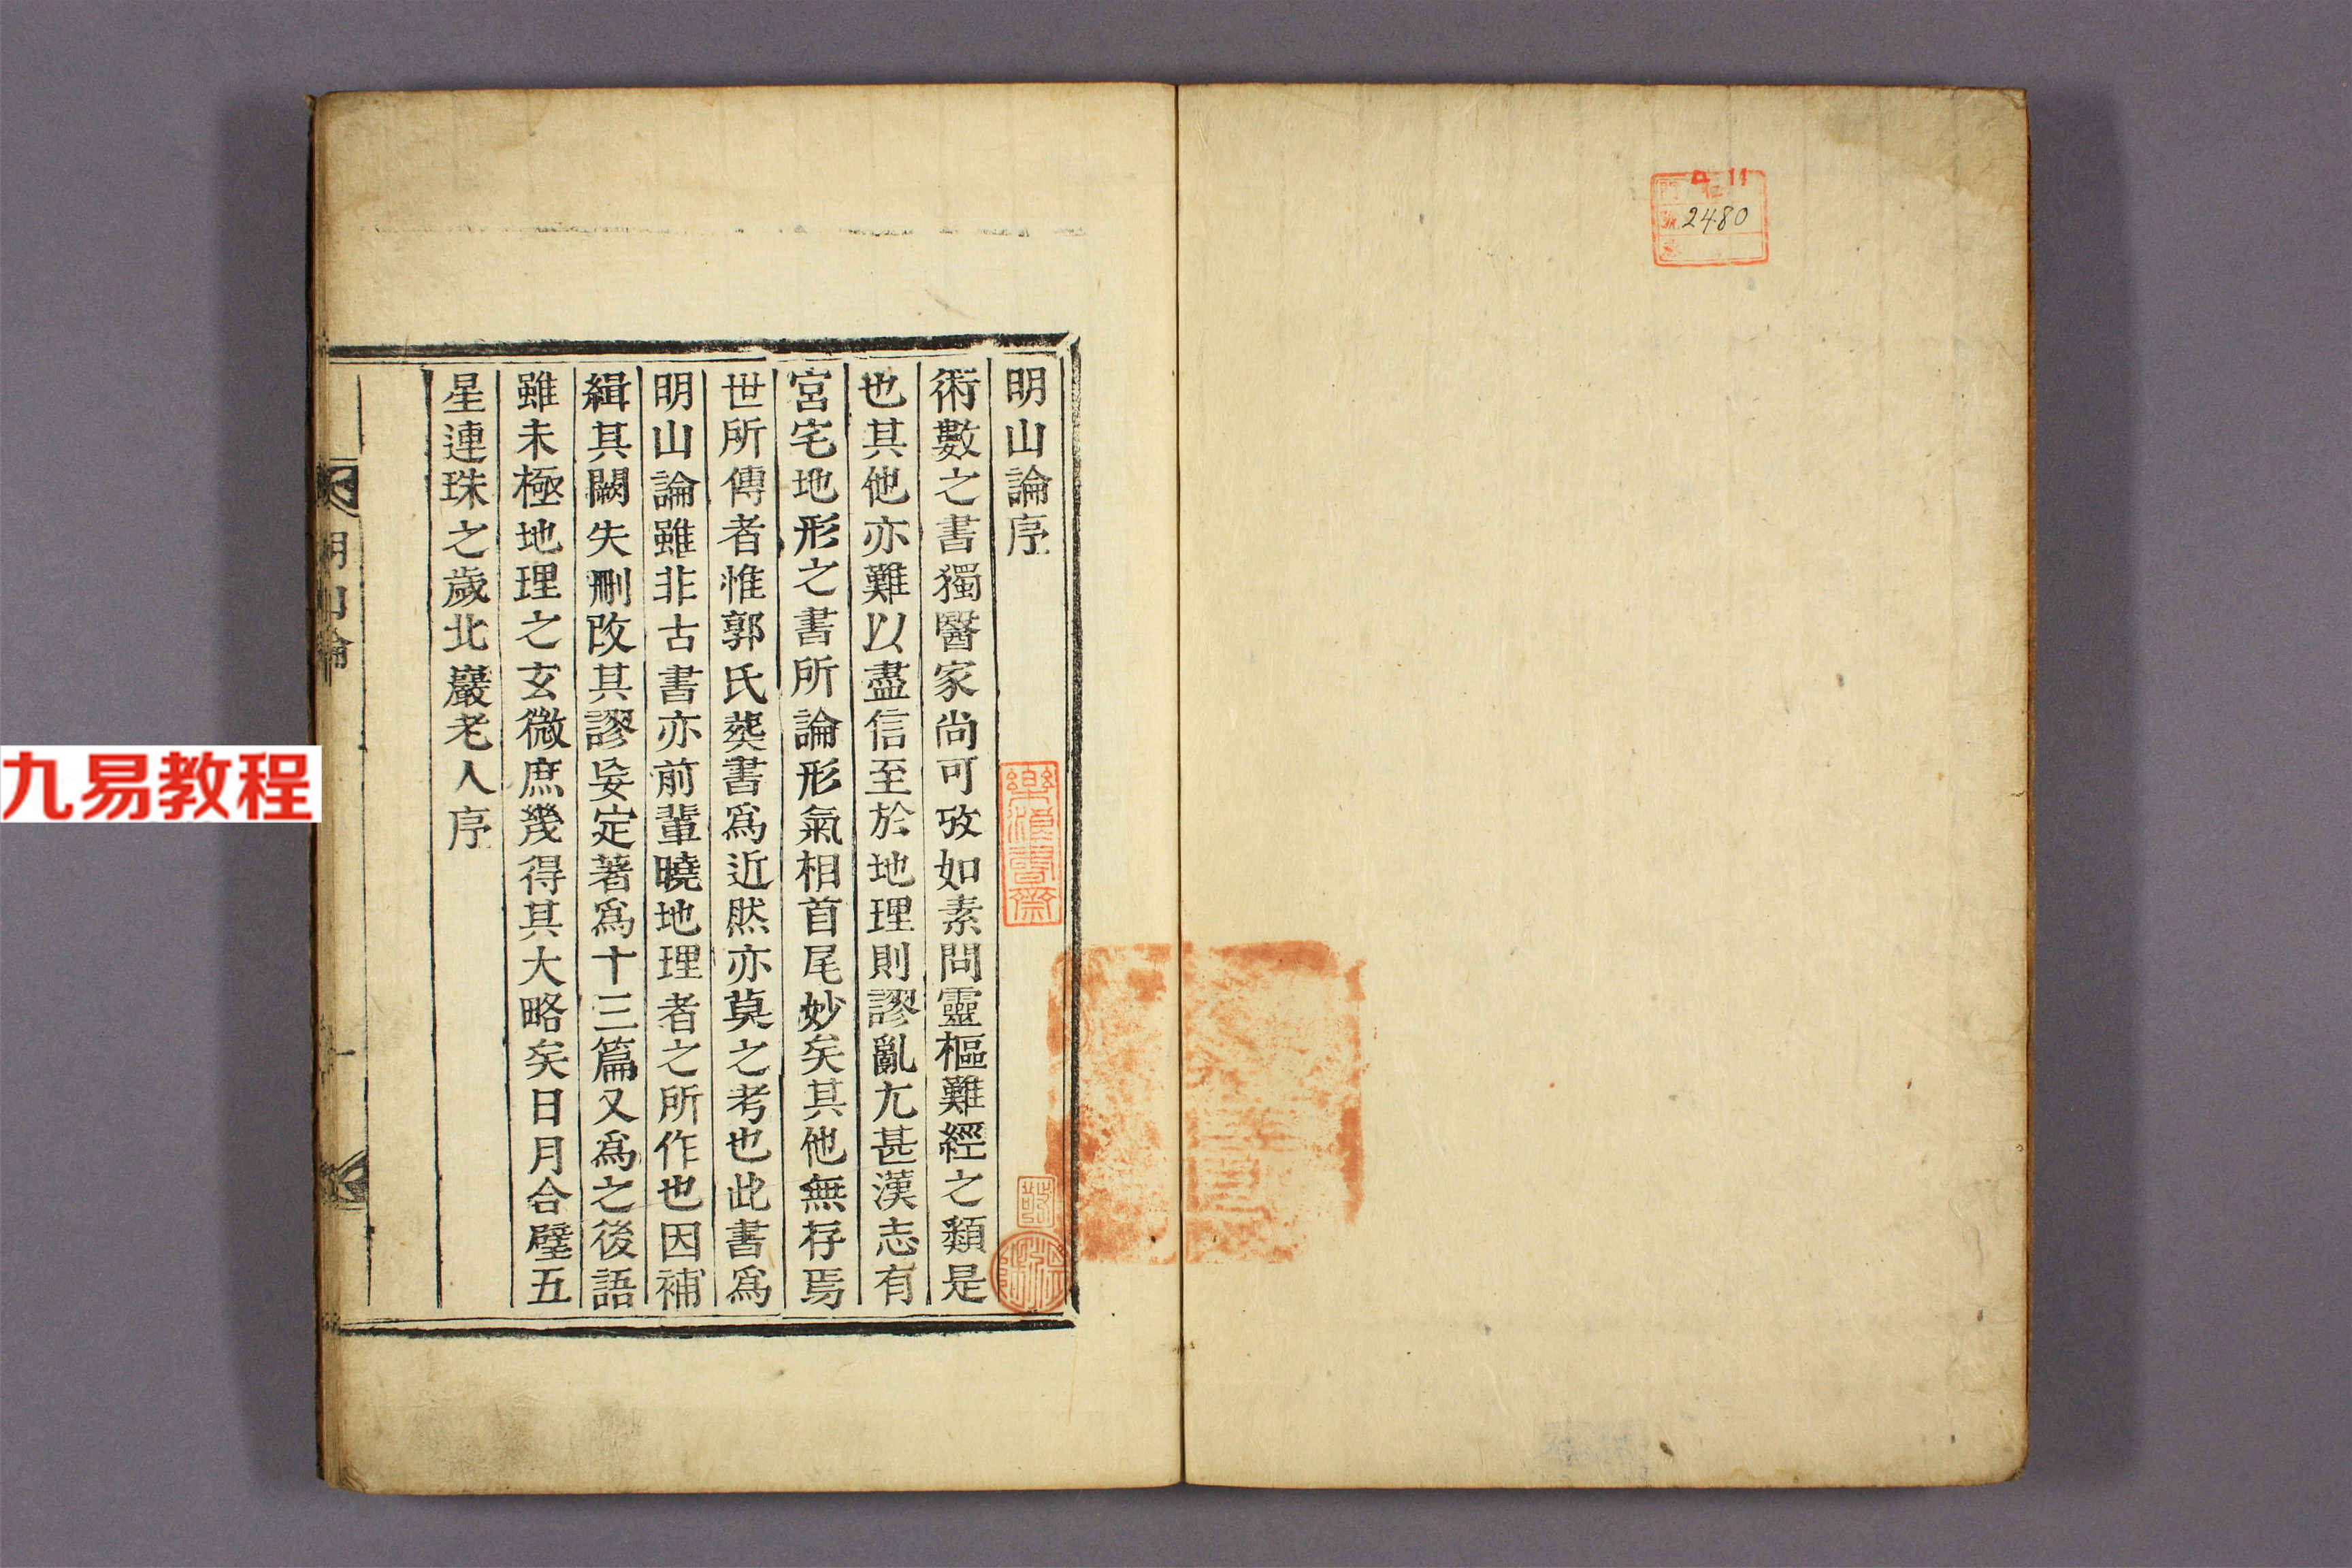 2480
明山論序
術數之書獨醫家尚可攷如素問靈樞難經之類是
也其他亦難以盡信至於地理則謬亂尤甚漢志有
宮宅地形之書所論形氣相首尾妙矣其他無存焉
世所傳者惟郭氏葬書爲近然亦莫之考也此書爲
明山論雖非古書亦前輩曉地理者之所作也因補
緝其闕失刪改其謬妄定著爲十三篇又爲之後語
雖未極地理之玄微庶幾得其大略矣日月合璧五
星連珠之歲北巖老人序
明山論
一
九易教程